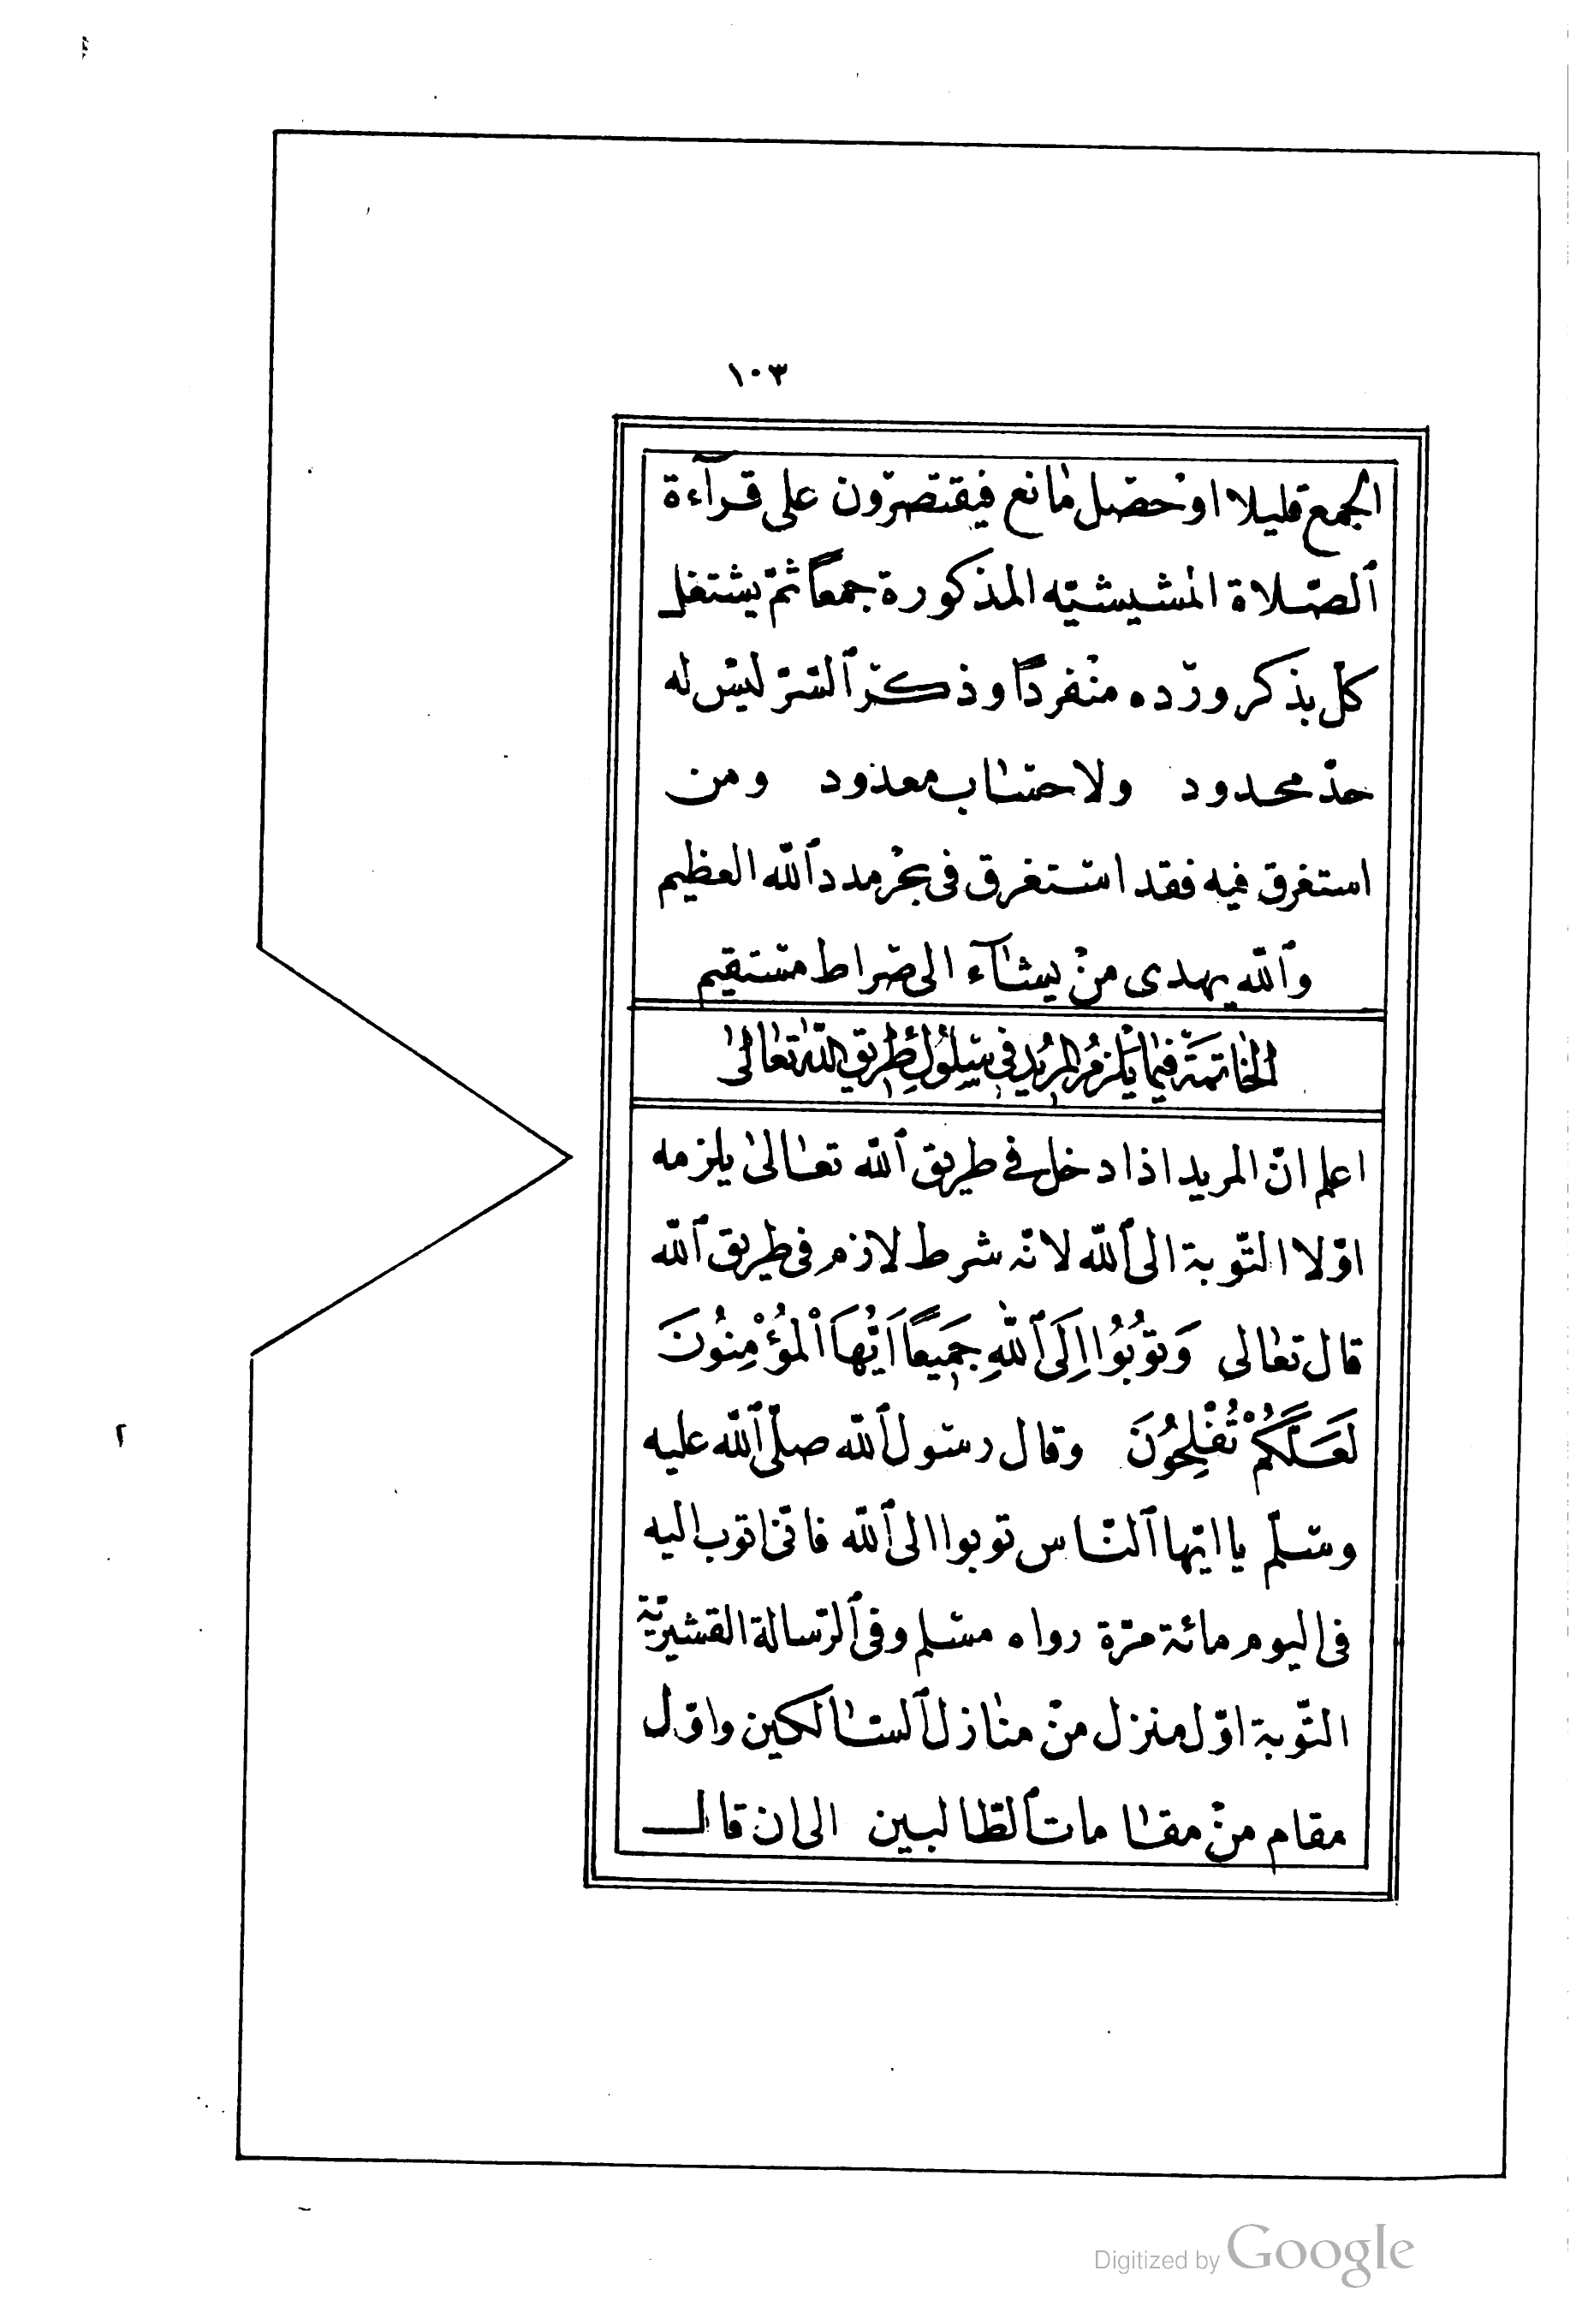 ١٠٣
الجمع قليلا اوْ حصَل مٰانع فيقتصرّون على قرآءة
ٱلصّلاة المٰشيشيّه المذكورة جمعاً ثمّ يشتغل
كلّ بذكر ورْده منْفرداً وذكرْ ٱلسّرّ ليسْ له
حدّ محدود ولا حسٰاب معدْود ومن
استغرق فيه فقد اسْتغرق فى بحْر مدد ٱللّه العظيم
وٱللّه يهدى منْ يشٰآء الى صراط مسْتقيم
الخٰاتمَةُ فيمٰا يَلْزمُ المُريْد فى سُلُوْكِ طَريقِ اللّٰه تعٰالىٰ
اعلم انّ المريد اذا دخل فى طريق ٱللّه تعٰالىٰ يلزمه
اوّلا التّوبة الى ٱللّه لانّه شرط لازم فى طريق ٱللّه
قال تعٰالى وَتُوبُوُا اِلَى ٱللّٰهِ جَمَيعاً اَيُّهَا اْلمُؤْمِنُونَ
لَعَلَّكُمْ تُفْلِحُونَ وقال رسول ٱللّه صلّى ٱللّه عليه
وسلّم يا ايّها ٱلنّاس توبوا الى ٱللّه فانّى اتوب اليه
فى اليوم مائة مرّة رواه مسْلم وفى ٱلرّسالة القشيريّة
التّوبة اوّل منزل منْ منٰازل ٱلسّٰالكين واوّل
مقام منْ مقٰامات ٱلطّالبين الى ان قال
٢
Digitized by Google